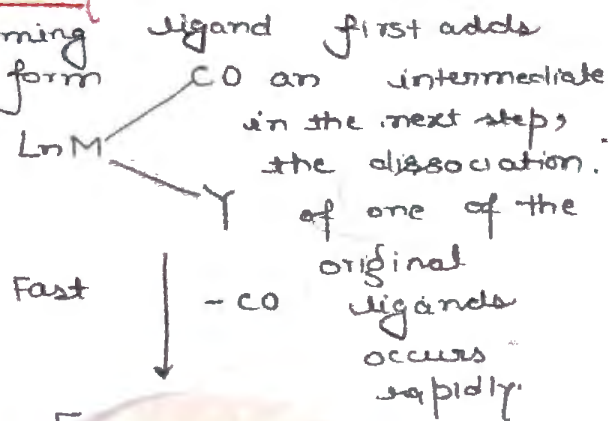 ming ligand first adds
form CO an intermediate
LnM in the next step,
the dissociation.
Y of one of the
original
Fast - CO ligands
occurs
rapidly.